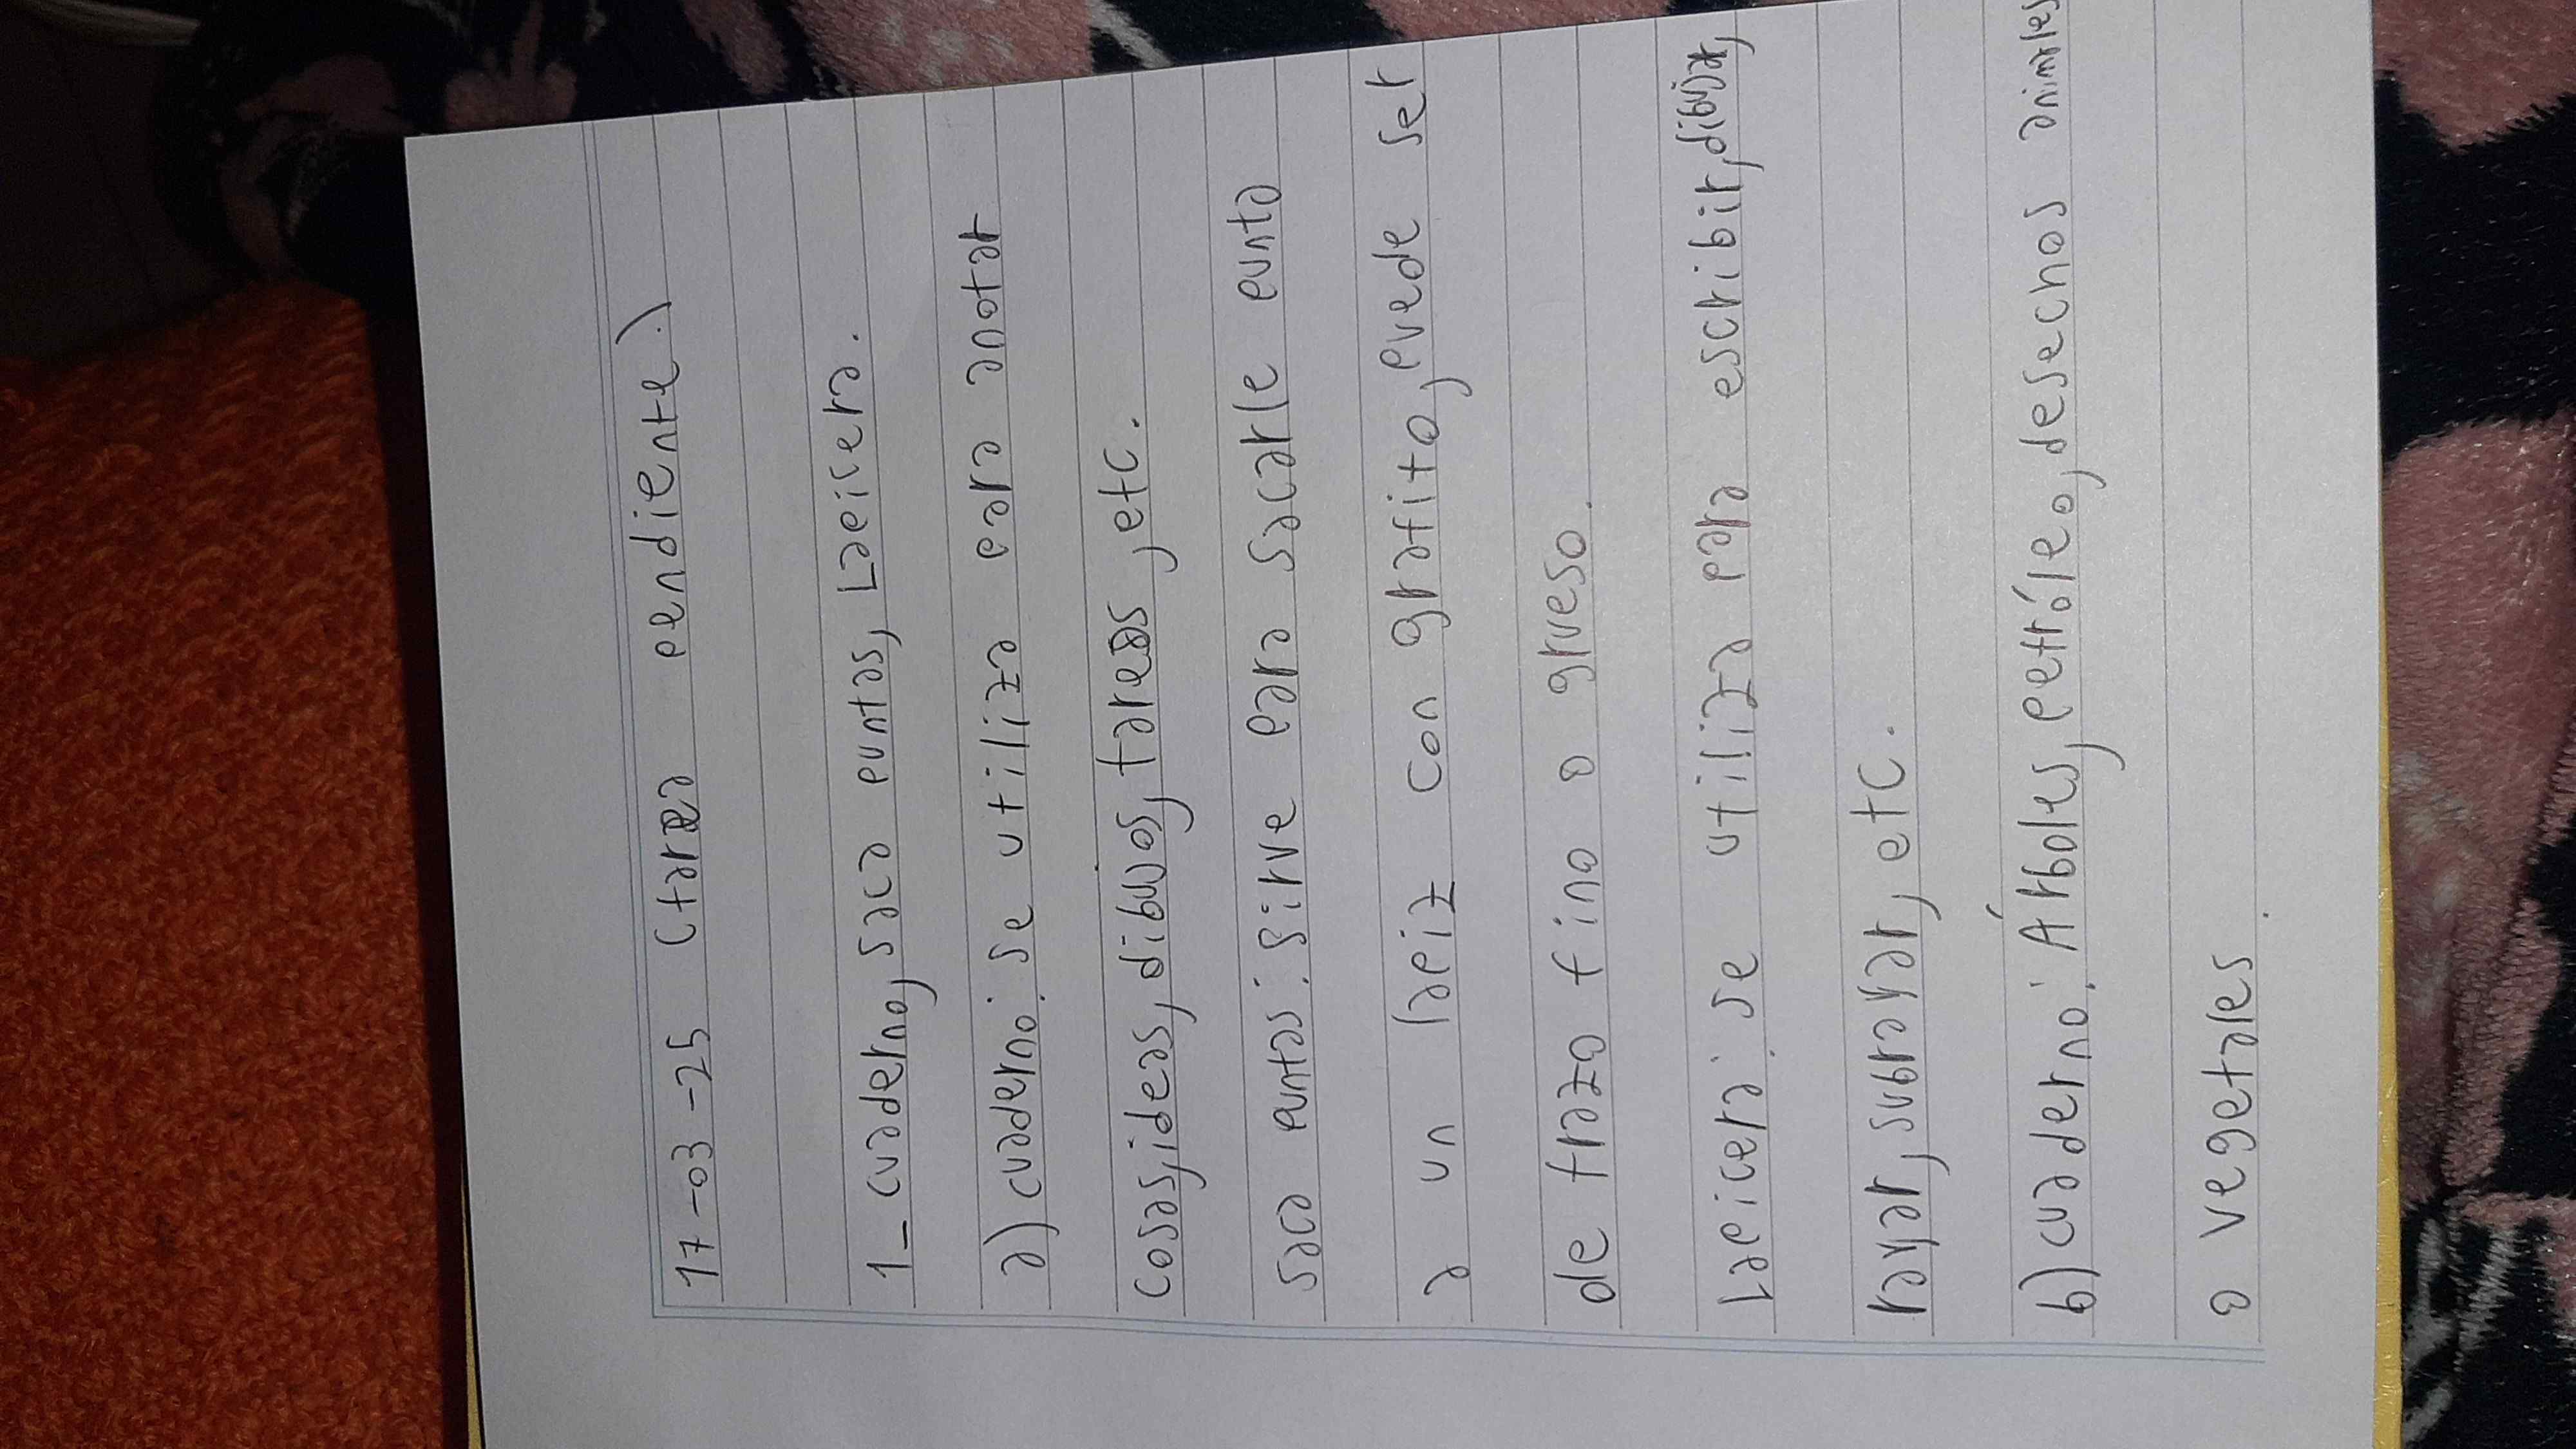 17-03-25 (tarea pendiente)
1_ cuaderno, saca puntas, Lapicera.
a) cuaderno: se utiliza para anotar
cosas, ideas, dibujos, tareas, etc.
saca puntas: sirve para sacarle punta
a un lapiz con grafito, puede ser
de trazo fino o grueso.
Lapicera: se utiliza para escribir, dibujar,
rayar, subrayar, etc.
b) cuaderno: Árboles, petróleo, desechos animales
o vegetales.